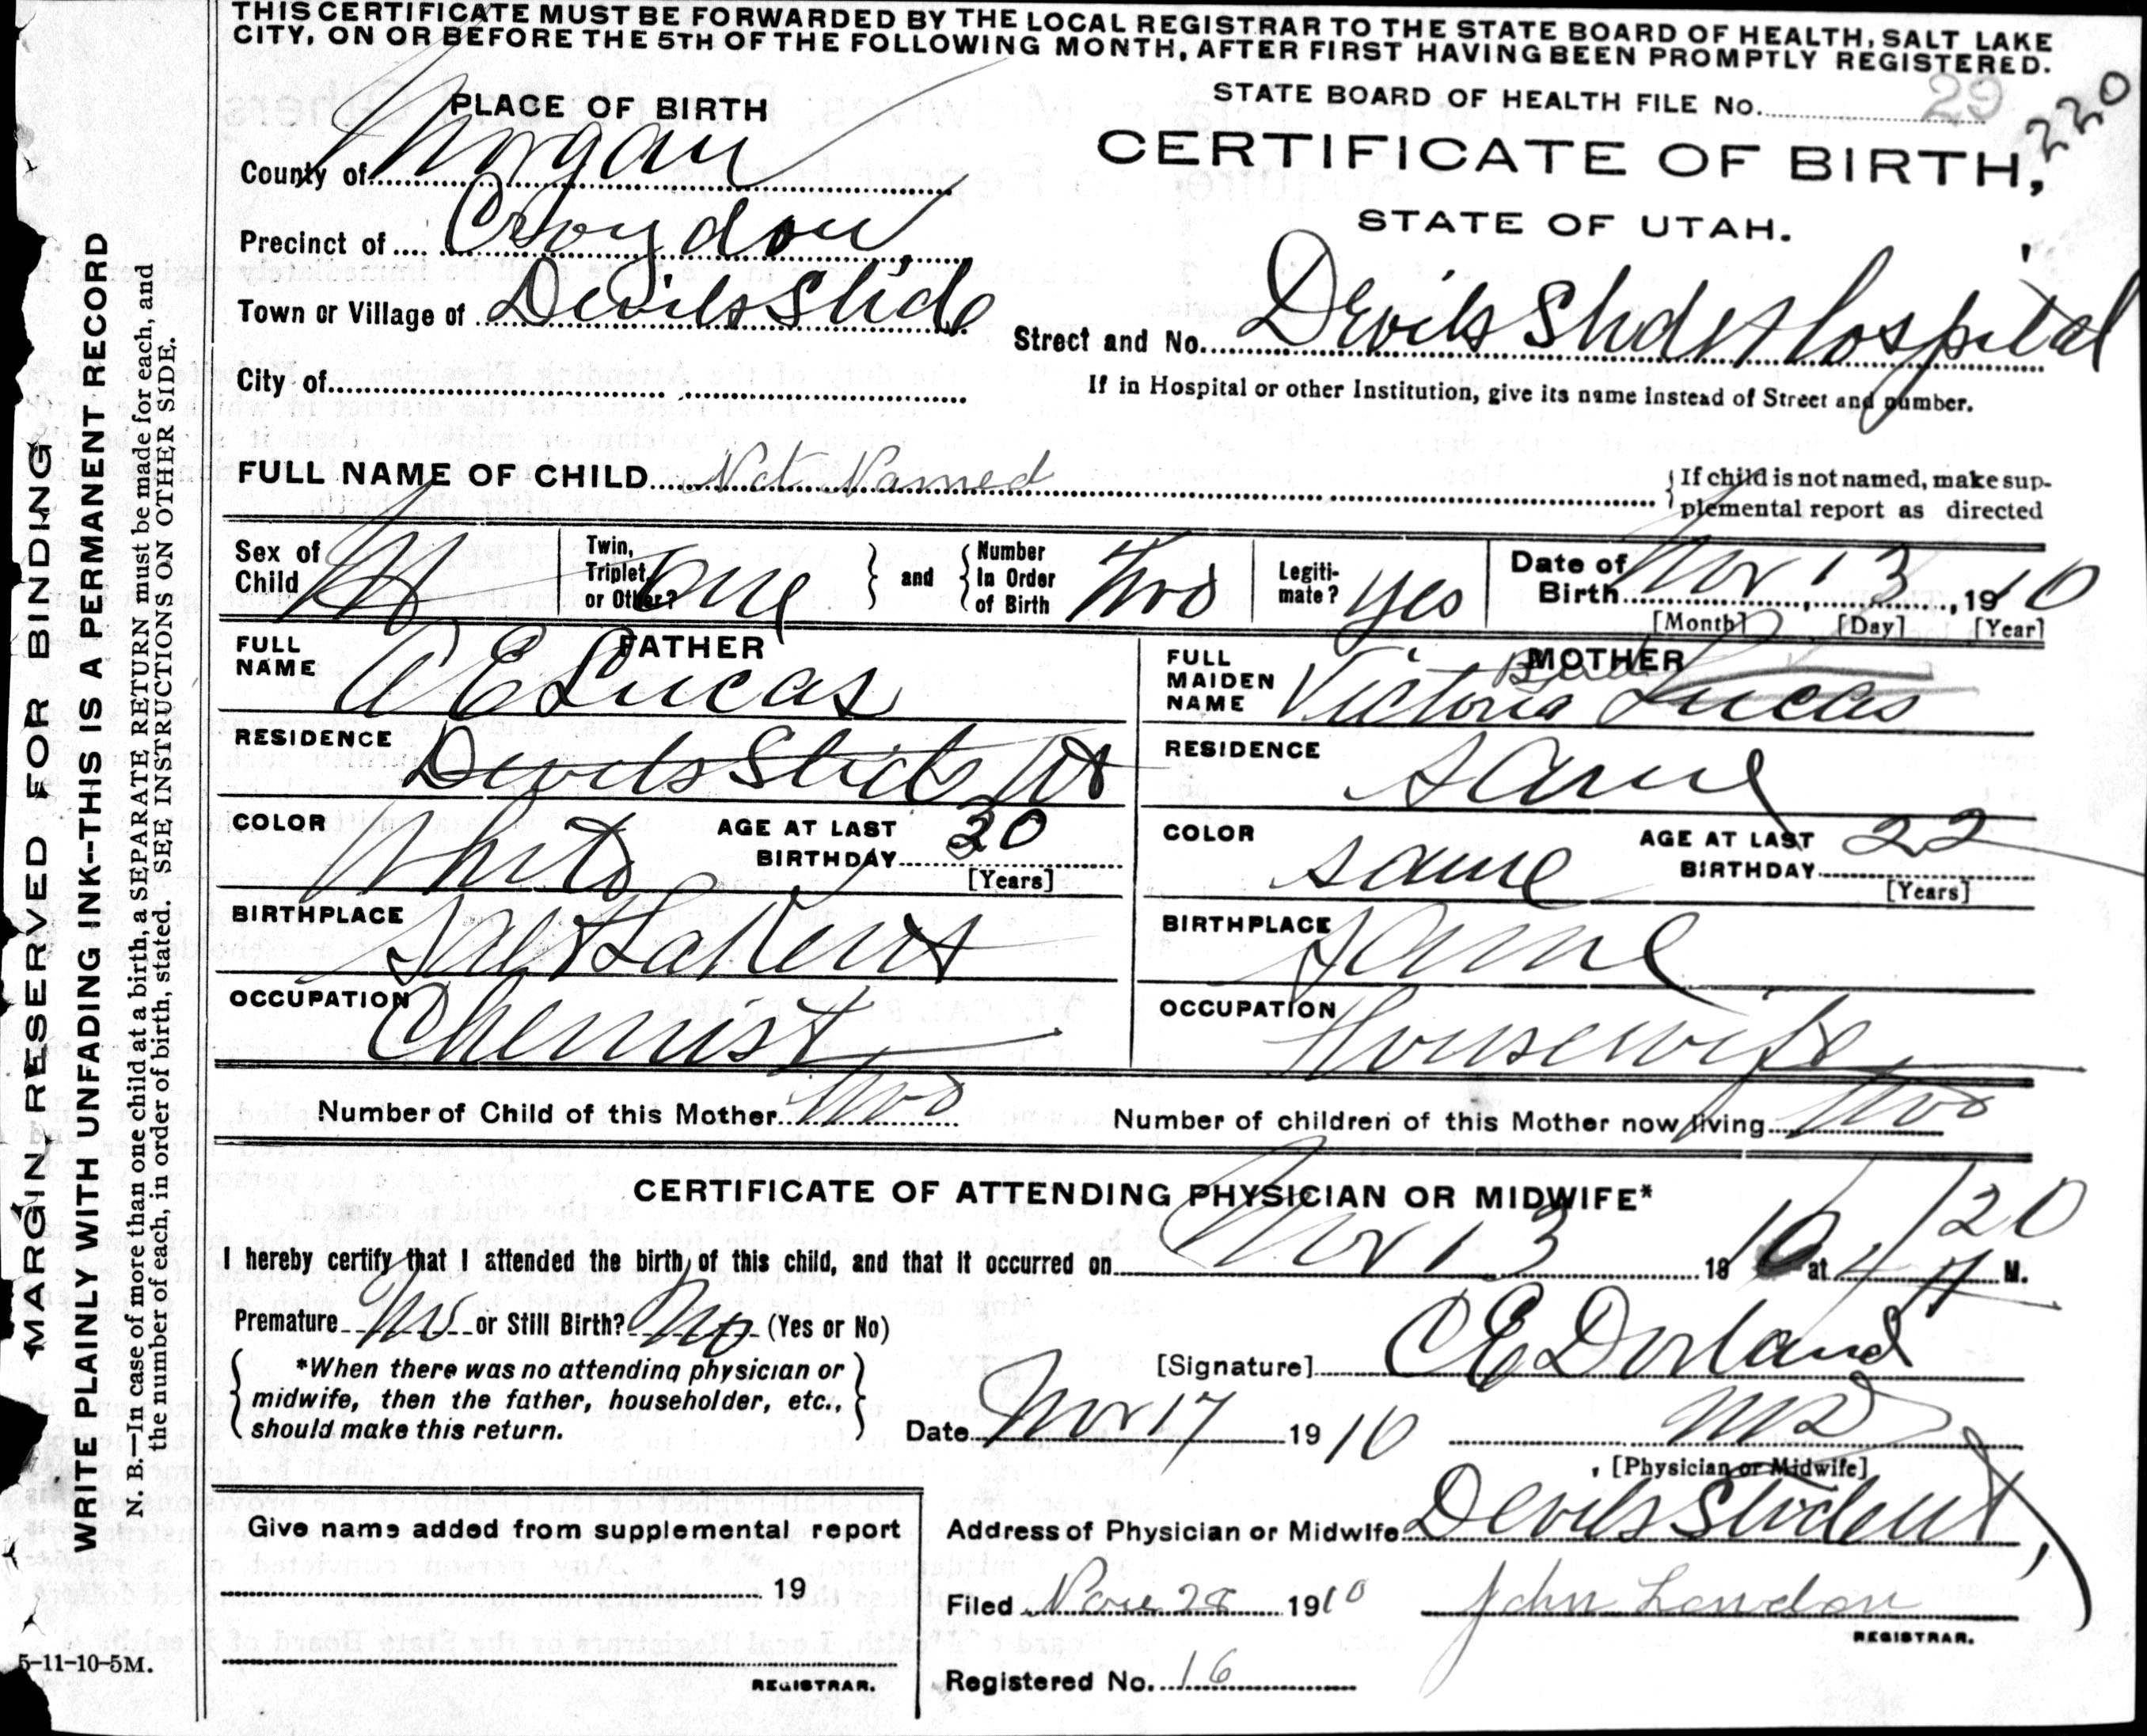 THIS CERTIFICATE MUST BE FORWARDED BY THE LOCAL REGISTRAR TO THE STATE BOARD OF HEALTH, SALT LAKE
CITY, ON OR BEFORE THE 5TH OF THE FOLLOWING MONTH, AFTER FIRST HAVING BEEN PROMPTLY REGISTERED.
STATE BOARD OF HEALTH FILE No. 29
220
PLACE OF BIRTH
CERTIFICATE OF BIRTH,
STATE OF UTAH.
County of Morgan
Precinct of Croydon
Town or Village of Devils Slide
Street and No. Devils Slide Hospital
City of
If in Hospital or other Institution, give its name instead of Street and number.
FULL NAME OF CHILD Not Named
If child is not named, make sup-
plemental report as directed
Sex of Child
Twin, Triplet, or Other? One
and Number In Order of Birth Two
Legiti-mate? Yes
Date of Birth Nov 13, 1910
[Month] [Day] [Year]
FATHER
FULL NAME A E Lucas
RESIDENCE Devils Slide Ut
COLOR White
AGE AT LAST BIRTHDAY 30
[Years]
BIRTHPLACE Salt Lake Ut
OCCUPATION Chemist
MOTHER
FULL MAIDEN NAME Victoria Lucas
RESIDENCE Same
COLOR same
AGE AT LAST BIRTHDAY 22
[Years]
BIRTHPLACE Same
OCCUPATION Housewife
Number of Child of this Mother Two
Number of children of this Mother now living Two
CERTIFICATE OF ATTENDING PHYSICIAN OR MIDWIFE*
I hereby certify that I attended the birth of this child, and that it occurred on Nov 13 1910 at 4/20 A M.
Premature No or Still Birth? No (Yes or No)
*When there was no attending physician or
midwife, then the father, householder, etc.,
should make this return.
[Signature] C E Dorland
Date Nov 17 1910
MD
[Physician or Midwife]
Give name added from supplemental report
Address of Physician or Midwife Devils Slide Ut
19
Filed Nov 28 1910 John London
REGISTRAR.
REGISTRAR.
Registered No. 16
MARGIN RESERVED FOR BINDING
WRITE PLAINLY WITH UNFADING INK--THIS IS A PERMANENT RECORD
N. B.—In case of more than one child at a birth, a SEPARATE RETURN must be made for each, and
the number of each, in order of birth, stated. SEE INSTRUCTIONS ON OTHER SIDE.
5-11-10-5M.